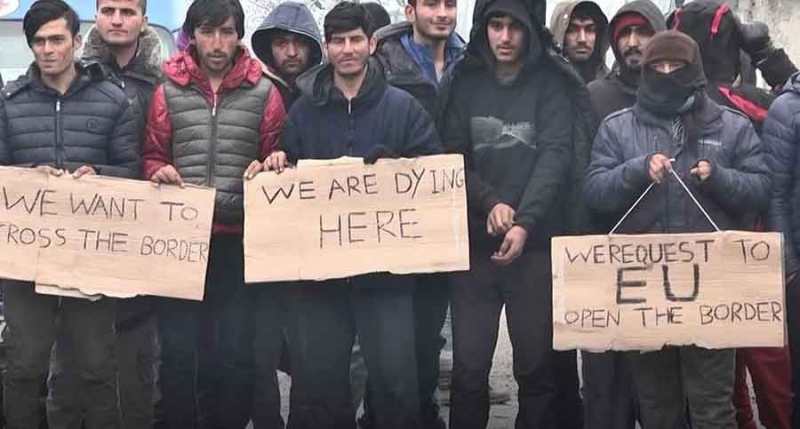 WE WANT TO
CROSS THE BORDER
WE ARE DYING
HERE
WE REQUEST TO
EU
OPEN THE BORDER